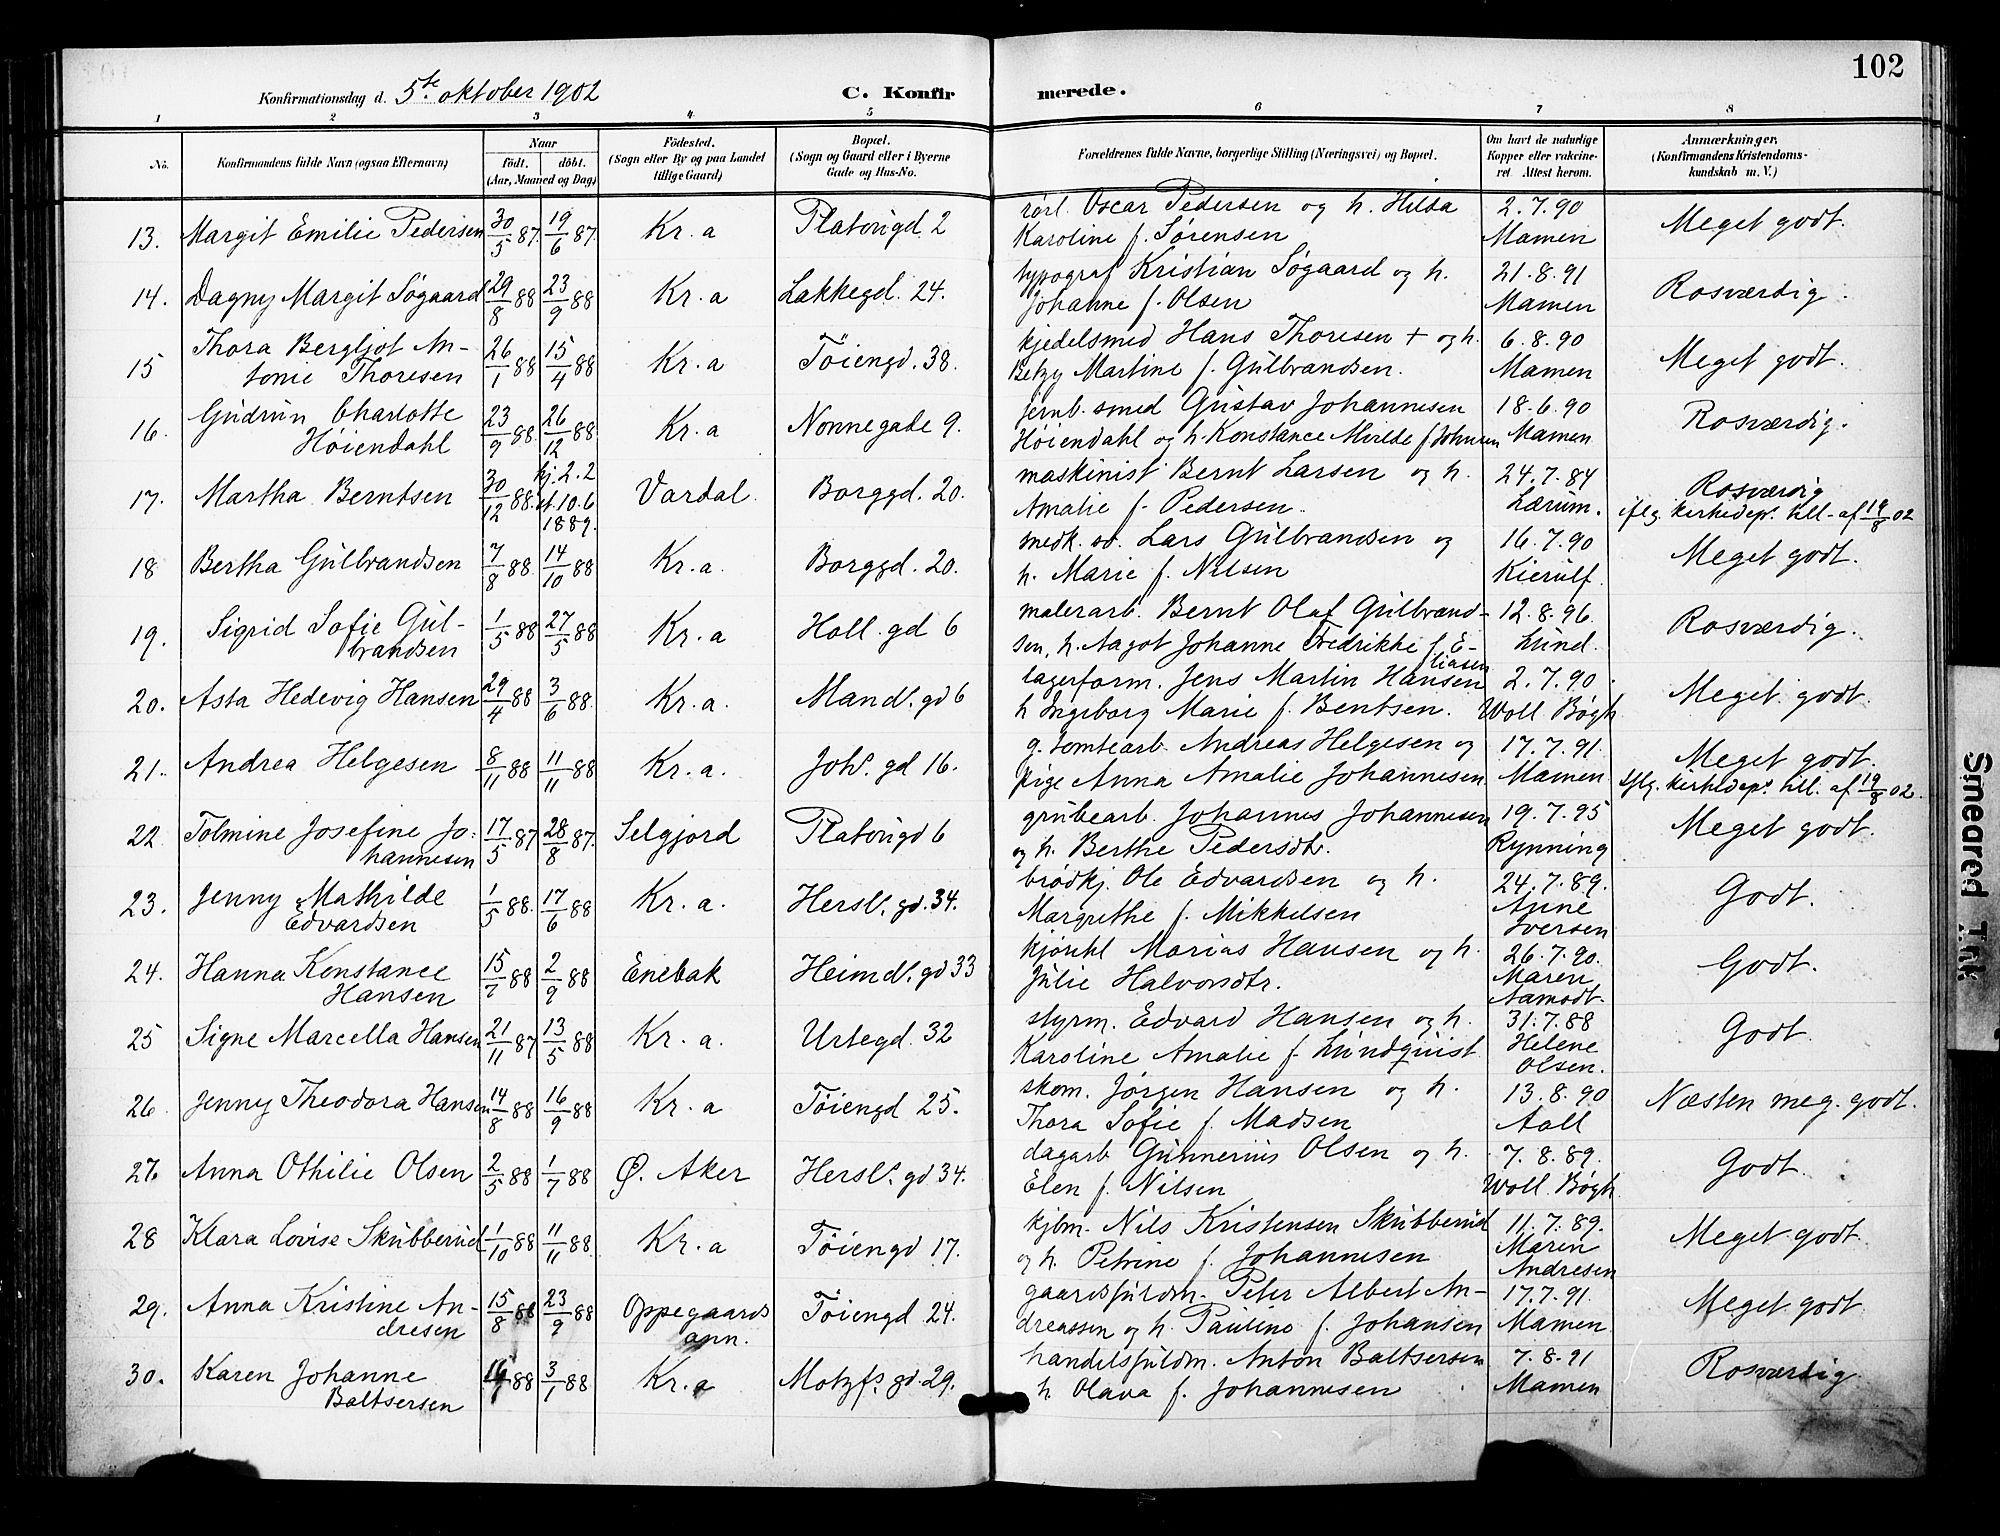 102
Konfirmationsdag d. 5te oktober 1902
C. Konfirmerede.
1 2 3 4 5 6 7 8
No. Konfirmandens fulde Navn (ogsaa Efternavn) Naar født. døbt. (Aar, Maaned og Dag) Fødested. (Sogn eller By og paa Landet tillige Gaard) Bopæl. (Sogn og Gaard eller i Byerne Gade og Hus-No. Forældrenes fulde Navne, borgerlige Stilling (Næringsvei) og Bopæl. Om havt de naturlige Kopper eller vakcineret. Attest herom. Anmærkninger, (Konfirmandens Kristendomskundskab m. V.)
13. Margit Emilie Pedersen 30/5 87. 19/6 87. Kr.a Platousgd. 2 rørl. Oscar Pedersen og h. Hilda 2.7.90 Meget godt.
Karoline f. Sørensen Mamen
14. Dagny Margit Søgaard 29/8 88 23/9 88 Kr.a Lakkegd. 24. typograf Kristian Søgaard og h. 21.8.91 Rosværdig.
Johanne f. Olsen Mamen
15 Thora Bergljot An- 26/1 88 15/4 88 Kr.a Tøiengd. 38. kjedelsmed Hans Thoresen + og h. 6.8.90 Meget godt.
tonie Thoresen Betzy Martine f. Gulbrandsen. Mamen
16. Gudrun Charlotte 23/9 88. 26/12 88. Kr.a Nonnegade 9. jernb. smed Gustav Johannesen 18.6.90 Rosværdig.
Høiendahl Høiendahl og h. Konstance f. Johnsen Mamen
17. Martha Berntsen 30/12 88. kj. 2.2 st. 10.6 1889. Vardal. Borggd. 20. maskinist Bernt Larsen og h. 24.7.84 Rosværdig
Amalie f. Pedersen. Lærum. iflg. kirkedep. till. af 19/8 02
18 Bertha Gulbrandsen 7/8 88. 14/10 88 Kr.a. Borggd. 20. smedk. sv. Lars Gulbrandsen og 16.7.90 Meget godt.
h. Marie f. Nilsen Kierulf.
19. Sigrid Sofie Gul- 1/5 88 27/5 88 Kr.a Holl. gd 6 malerarb. Bernt Olaf Gulbrand- 12.8.96 Rosværdig.
brandsen sen, h. Aagot Johanne Fredrikke f. E- Lund.
liasen
20. Asta Hedevig Hansen 29/4 88 3/6 88. Kr.a. Mands. gd 6 lagerform. Jens Martin Hansen 2.7.90. Meget godt.
h Ingeborg Marie f. Bentsen. Woll Bøgh
21. Andrea Helgesen 8/11 88 11/11 88 Kr.a. Johs. gd 16. g. tomtearb. Andreas Helgesen og 17.7.91. Meget godt.
pige Anna Amalie Johannesen Mamen iflg. kirkedep. till. af 19/8 02.
22 Tolmine Josefine Jo- 17/5 87 28/8 87. Selgjord Platousgd 6 grubearb. Johannes Johannesen 19.7.95 Meget godt.
hannesen og h. Berthe Pedersdtr. Rynning
23. Jenny Mathilde 1/5 88. 17/6 88 Kr.a. Hersl. gd. 34. brødkj. Ole Edvardsen og h. 24.7.89. Godt.
Edvardsen Margrethe f. Mikkelsen Anne Iversen
24. Hanna Konstance 15/7 88 2/9 88 Enebak Heimd. gd 33 Marias Hansen og h. 26.7.90. Godt.
Hansen Julie Halvorsdtr. Maren Aamodt.
25 Signe Marcella Hansen 21/11 87 13/5 88 Kr.a. Urtegd. 32 styrm. Edvard Hansen og h. 31.7.88 Godt.
Karoline Amalie f. Lundquist Helene Olsen.
26. Jenny Theodora Hansen 14/8 88 16/9 88 Kr.a Tøiengd 25. skom. Jørgen Hansen og h. 13.8.90 Næsten meg. godt.
Thora Sofie f. Madsen Aall
27. Anna Othilie Olsen 2/5 88 1/7 88 Ø. Aker Hersl. gd 34. dagarb Gunnerius Olsen og h. 7.8.89. Godt.
Elen f. Nilsen Woll Bøgh
28 Klara Lovise Skubberud 1/10 88 11/11 88. Kr.a Tøiengd 17. kjbm. Nils Kristensen Skubberud 11.7.89. Meget godt.
og h. Petrine f. Johannesen Maren Andresen
29. Anna Kristine An- 15/8 88 23/9 88 Oppegaards Tøiengd 24. gaardsfuldm. Peter Albert An- 17.7.91. Meget godt.
dresen ann. dreassen og h. Pauline f. Johansen Mamen
30. Karen Johanne 88 3/1 88 Kr.a Motzfs. gd. 29. handelsfuldm. Anton Baltsersen 7.8.91 Rosværdig
Baltsersen h Olava f. Johannesen Mamen
Smeared Ink